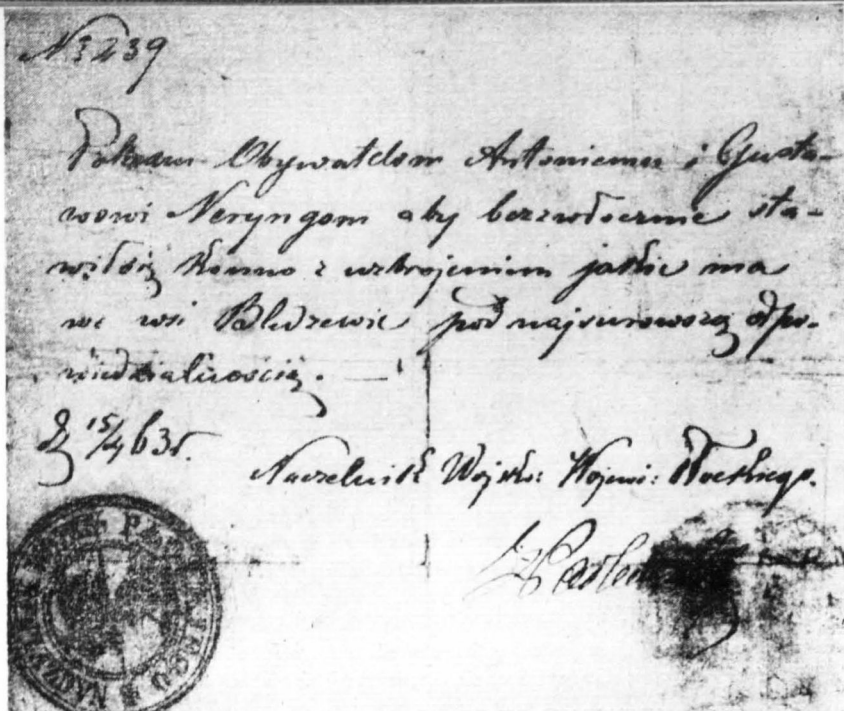 N 3239
Polecam Obywatelom Antoniemu i Gusta-
wowi Neryngom aby bezzwłocznie sta-
wili się konno z uzbrojeniem jakie ma
we wsi Bledzewie pod najsurowszą odpo-
wiedzialnością.
D 15/4 63 r.
Naczelnik Wojsk: Wojew: Płockiego.